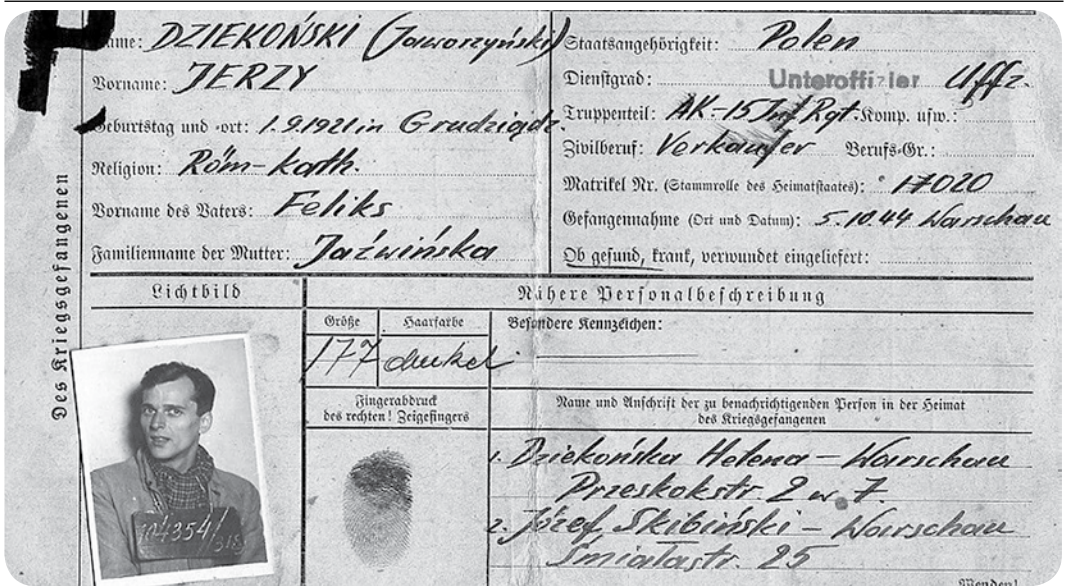 Name: DZIEKOŃSKI (Jaworzyński)
Vorname: JERZY
Geburtstag und -ort: 1.9.1921 in Grudziądz.
Religion: Röm-kath.
Vorname des Vaters: Feliks
Familienname der Mutter: Jaźwińska
Staatsangehörigkeit: Polen
Dienstgrad: Unteroffizier Uffz.
Truppenteil: AK-15 Inf Rgt. Komp. usw.:
Zivilberuf: Verkäufer Berufs-Gr.:
Matrikel Nr. (Stammrolle des Heimatstaates): 17020
Gefangennahme (Ort und Datum): 5.10.44 Warschau
Ob gesund, krank, verwundet eingeliefert:
Des Kriegsgefangenen
Lichtbild
Nähere Personalbeschreibung
Größe
Haarfarbe
Besondere Kennzeichen:
177
dunkel
Fingerabdruck
des rechten! Zeigefingers
Name und Anschrift der zu benachrichtigenden Person in der Heimat
des Kriegsgefangenen
1. Dziekońska Helena – Warschau
Przeskokstr. 2 w 7.
2. Józef Skibiński – Warschau
Śmiałastr. 25
104354/318
Wenden!